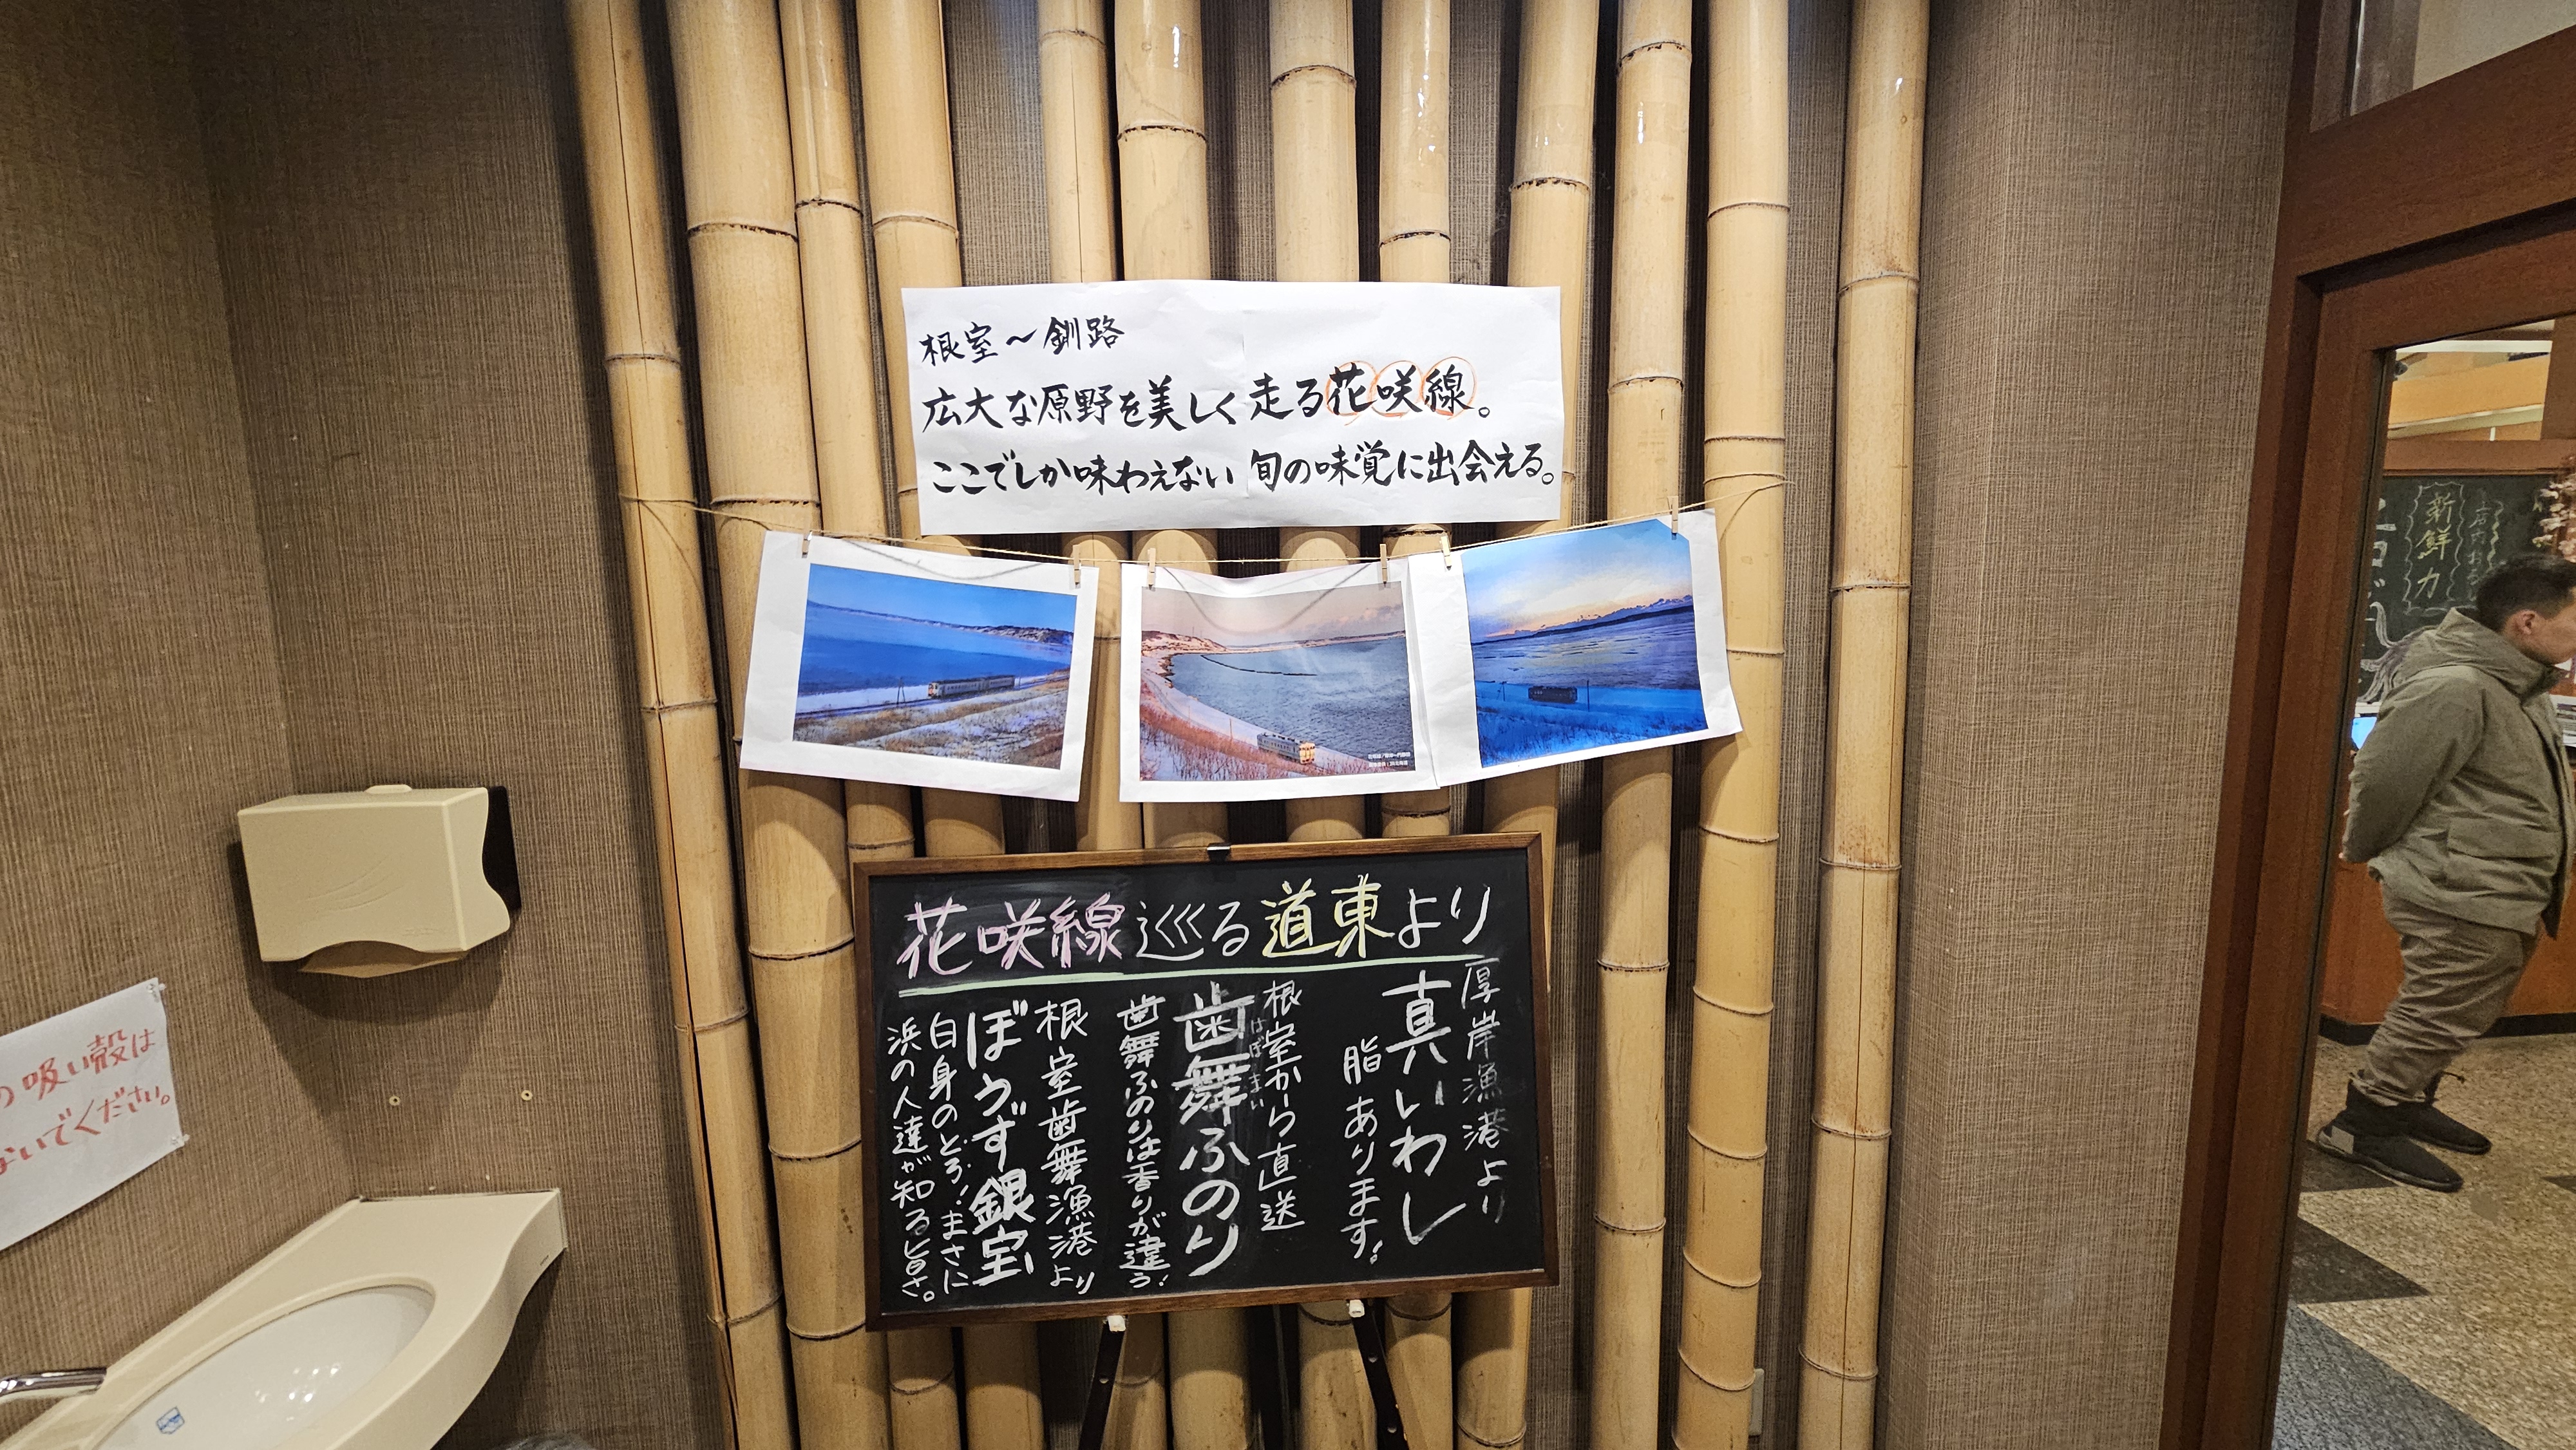 根室〜釧路
広大な原野を美しく走る花咲線。
ここでしか味わえない旬の味覚に出会える。
花咲線巡る道東より
厚岸漁港より
真いわし
脂あります!
根室から直送
はぼまい
歯舞ふのり
歯舞ふのりは香りが違う!
根室歯舞漁港より
ぼうず銀宝
白身のとろ!まさに
浜の人達が知る旨さ。
の吸い殻は
ないでください。
新鮮力